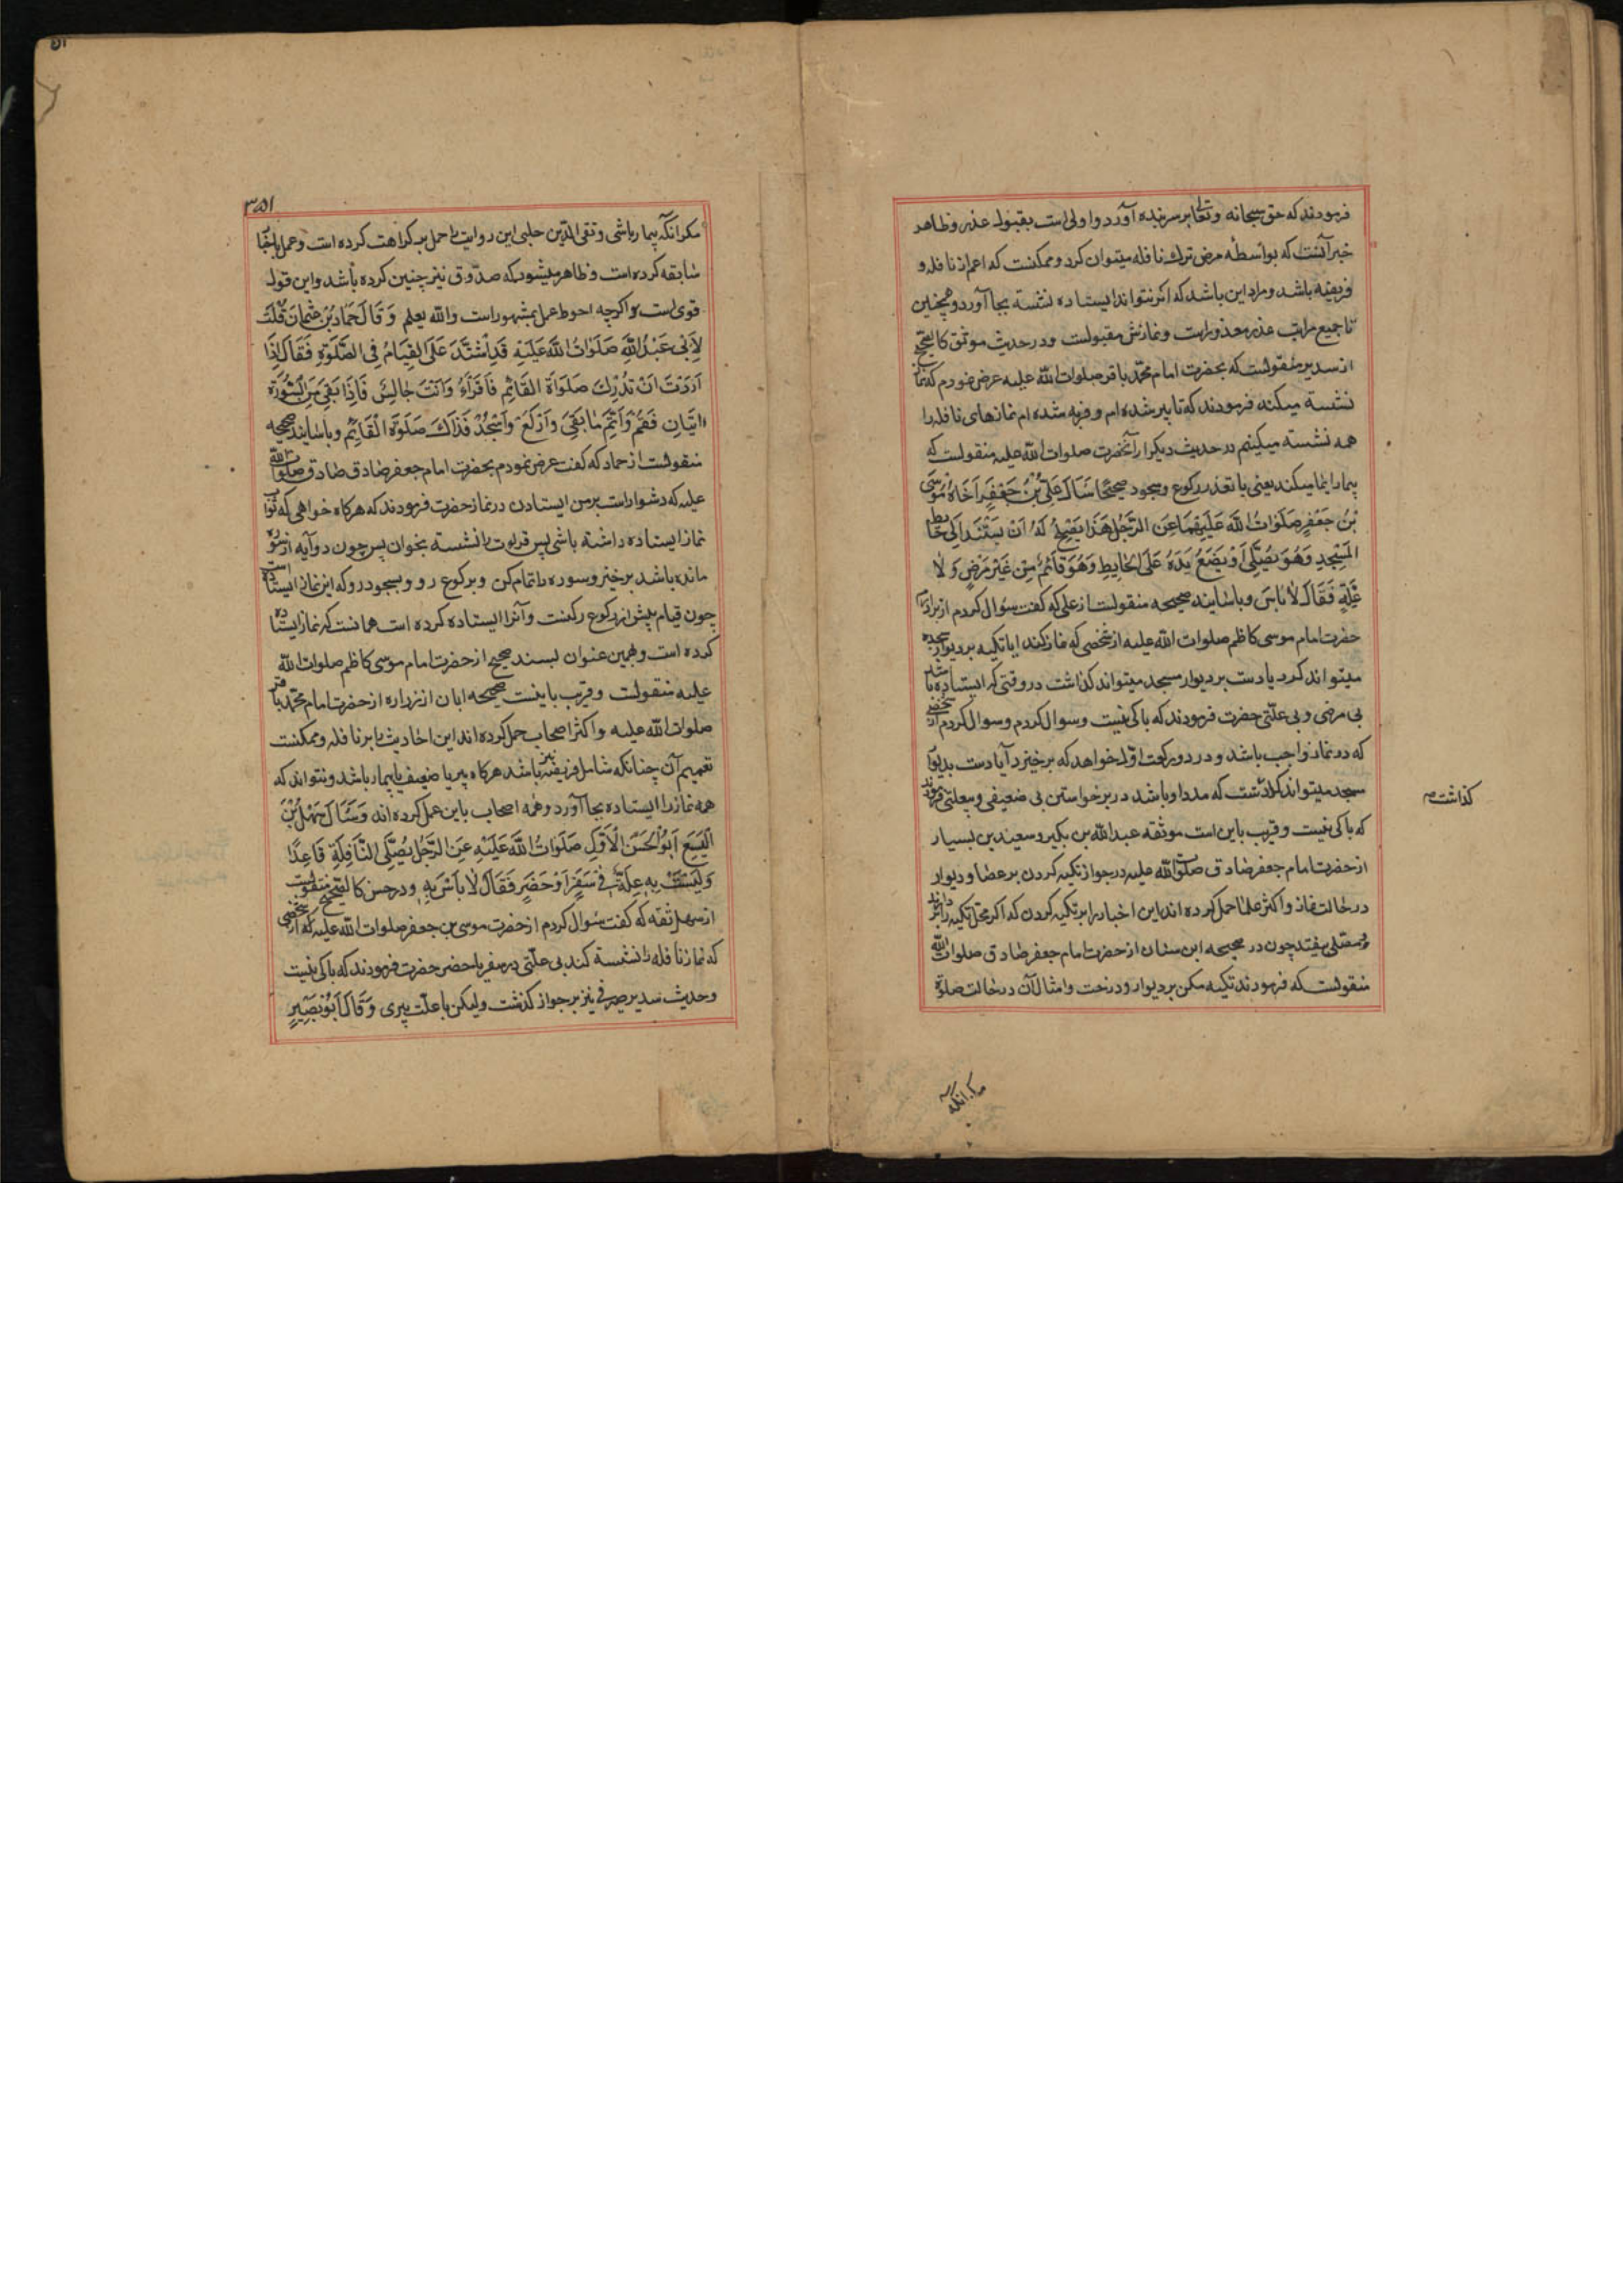 فرمودند که حق سبحانه و تعالی بر سر بنده آورد و اولی است بقبول عذر و ظاهر
خبر آنست که بواسطه مرض ترك نافله میتوان کرد و ممکنست که اعم از نافله و
فریضه باشد و مراد این باشد که اگر نتواند ایستاده نشسته بجا آورد و همچنین
تا جمیع مراتب عذر معذور است و نمازش مقبولست و در حدیث موثق کالصحیح
از سدیر منقولست که بحضرت امام محمد باقر صلوات الله علیه عرض نمودم که نماز
نشسته میکنید فرمودند که تا پیر شده ام و فربه شده ام نمازهای نافله را
همه نشسته میکنیم در حدیث دیگر از آنحضرت صلوات الله علیه منقولست که
بیمار ایما میکند یعنی با تعذر رکوع و سجود صحیحًا سَاَلَ عَلِیُّ بْنُ جَعْفَرٍ اَخَاهُ مُوسَی
بْنَ جَعْفَرٍ صَلَوٰاتُ اللَّه عَلَیْهِمَا عَنِ الرَّجُلِ هَذَا یَصْلِحُ لَهُ اَنْ یَسْتَنِدَ اِلَی حٰایطِ
المَسْجِدِ وَهُوَ یُصَلِّی اَوْ یَضَعُ یَدَهُ عَلَی الحٰایِطِ وَهُوَ قٰائِمٌ مِنْ غَیْرِ مَرَضٍ وَ لٰا
عِلَّةٍ فَقَالَ لٰا بَاسَ و باسانید صحیحه منقولست از علی که گفت سؤال کردم از برادرم
حضرت امام موسی کاظم صلوات الله علیه از شخصی که نماز کند ایا تکیه بر دیوار مسجد
میتواند کرد یا دست بر دیوار مسجد میتواند گذاشت در وقتی که ایستاده باشد
بی مرضی و بی علتی حضرت فرمودند که باکی نیست و سوال کردم و سوال کردم از شخصی
که در نماز واجب باشد و در دو رکعت اول خواهد که برخیزد آیا دست بدیوار
مسجد میتواند گذاشت که مدد او باشد در برخواستن بی ضعیفی و بی علتی فرمودند
که باکی نیست و قریب باین است موثقه عبد الله بن بکیر و سعید بن یسار
از حضرت امام جعفر صادق صلوات الله علیه در جواز تکیه کردن بر عصا و دیوار
در حالت نماز و اکثر علما حمل کرده اند این اخبار را بر تکیه کردن که اگر محل تکیه را بردارند
مصلی نیفتد چون در صحیحه ابن سنان از حضرت امام جعفر صادق صلوات الله
منقولست که فرمودند تکیه مکن بر دیوار و درخت و امثال آن در حالت صلوة
گذاشت
مگر انکه
۳۵۱
مگر آنکه بیمار باشی و تقی الدین حلبی این روایت را حمل بر کراهت کرده است و عمل باخبار
سابقه کرده است و ظاهر میشود که صدّوق نیز چنین کرده باشد و این قول
قوی است و اگرچه احوط عمل بمشهور است والله یعلم وَ قَالَ حَمَادُ بْنُ عثمان قُلْتُ
لِأَبِی عَبْدِ اللَّهِ صَلَوٰاتُ اللهَ عَلَیْهِ قَدِ اشْتَدَّ عَلَیَّ القِیٰامُ فِی الصَّلوٰةِ فَقَالَ اِذَا
اَرَدْتَ اَنْ تُدْرِكَ صَلَوٰةَ القَائِمِ فَاقْرَأْ وَ اَنْتَ جٰالِسٌ فَاِذَا بَقِیَ مِنَ السُّورَة
اٰیَتَانِ فَقُمْ وَ اَتِمَّ مٰا بَقِیَ وَ ارْکَعْ وَ اسْجُدْ فَذٰلِكَ صَلَوةُ الْقَائِمِ و باسانید صحیحه
منقولست از حماد که گفت عرض نمودم بحضرت امام جعفر صادق صادق صلوات الله
علیه که دشوار است بر من ایستادن در نماز حضرت فرمودند که هرگاه خواهی که ثواب
نماز ایستاده داشته باشی پس قراءت را نشسته بخوان پس چون دو آیه از سوره
مانده باشد برخیز و سوره را تمام کن و برکوع رو و بسجود رو که این نماز ایستاده است
چون قیام پیش از رکوع رکنست و آنرا ایستاده کرده است همانست که نماز ایستاده
کرده است و بهمین عنوان بسند صحیح از حضرت امام موسی کاظم صلوات الله
علیه منقولست و قریب باینست صحیحه ابان از زراره از حضرت امام محمد باقر
صلوات الله علیه و اکثر اصحاب حمل کرده اند این احادیث را بر نافله و ممکنست
تعمیم آن چنانکه شامل فریضه نیز باشد هرگاه پیر یا ضعیف یا بیمار باشد و نتواند که
همه نماز را ایستاده بجا آورد و همه اصحاب باین عمل کرده اند وَ سَئَالَ سَهْلُ بْنُ
اَلْیَسَعِ اَبَوُ الحَسَنِ الْاَوَّلِ صَلَوٰاتُ اللهَ عَلَیْهِ عَنِ الرَّجُلِ یُصَلِّی النَّافِلَةِ قَاعِدًا
وَ لَیْسَتْ بِهِ عِلَّةٌ فِی سَفَرٍ اَوْ حَضَرٍ فَقَالَ لٰا بَاسَ بِهِ و در حسن کالصحیح منقولست
از سهل ثقه که گفت سؤال کردم از حضرت موسی بن جعفر صلوات الله علیه که از شخصی
که نماز نافله را نشسته کند بی علتی در سفر یا حضر حضرت فرمودند که باکی نیست
و حدیث سدیر صیرفی نیز بر جواز گذشت ولیکن با علّت پیری وَ قَالَ اَبُو بَصِیرٍ